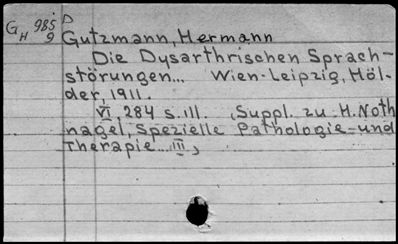 G 985 D
H 9
Gutzmann, Hermann
Die Dysarthrischen Sprach-
störungen... Wien-Leipzig, Höl-
der, 1911.
VI, 284 s. ill. (Suppl. zu H. Noth
nagel, Spezielle Pathologie und
Therapie... III)